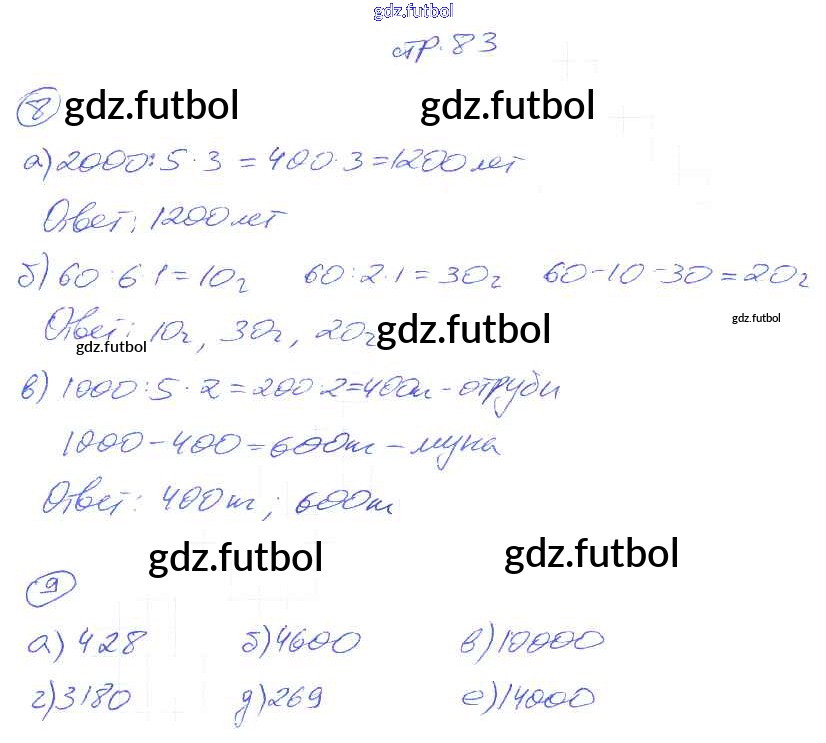 gdz.futbol
стр. 83
8 gdz.futbol gdz.futbol
а) 2000:5·3 = 400·3 = 1200 лет
Ответ: 1200 лет
б) 60:6·1 = 10г 60:2·1 = 30г 60-10-30 = 20г
Ответ: 10г, 30г, 20г gdz.futbol gdz.futbol
gdz.futbol
в) 1000:5·2 = 200·2 = 400т - отруби
1000-400 = 600т - мука
Ответ: 400т; 600т
gdz.futbol gdz.futbol
9
а) 428 б) 4600 в) 10000
г) 3180 д) 269 е) 14000